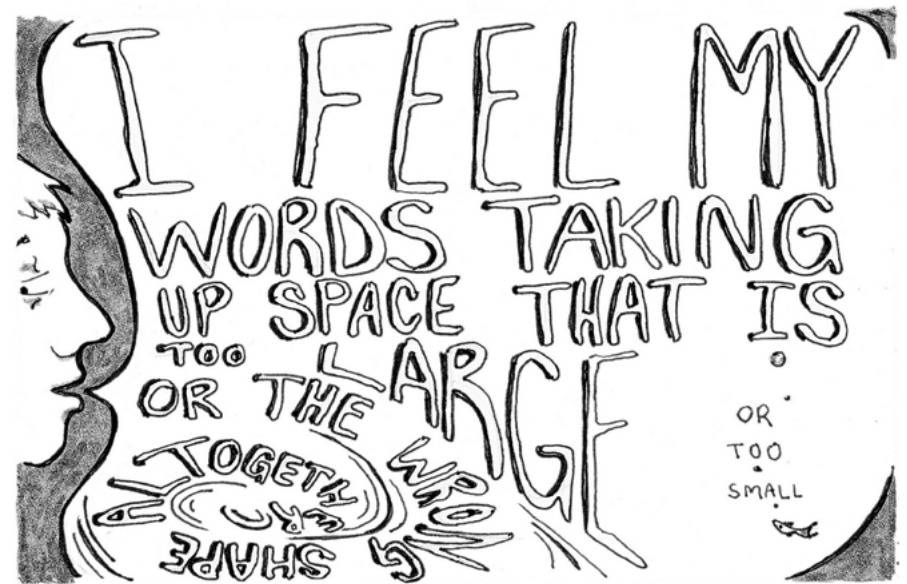 I FEEL MY
WORDS TAKING
UP SPACE THAT IS
TOO LARGE
OR
TOO
SMALL
OR THE
WRONG
SHAPE
ALTOGETHER